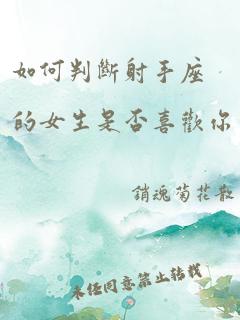 如何判斷射手座
的女生是否喜歡你
銷魂菊花散
未经同意禁止转载